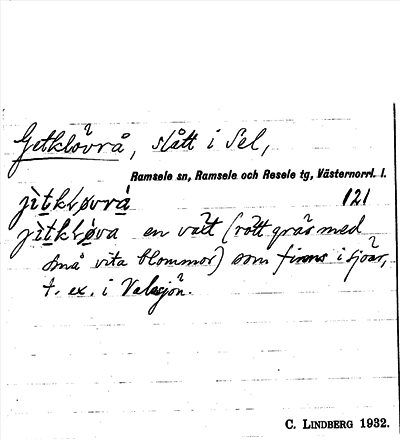 Getklövrå, slått i Sel,
Ramsele sn, Ramsele och Resele tg, Västernorrl. l.
jìtkḷøvrå 121
jìtkḷøva en växt (rött gräs med
små vita blommor) som finns i sjöar,
t. ex. i Valasjön.
C. LINDBERG 1932.